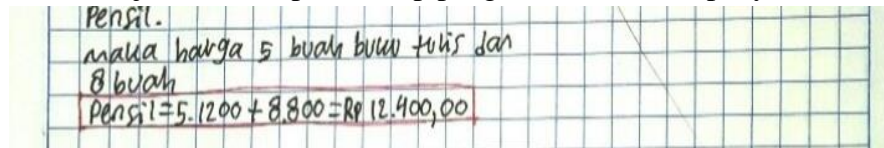 Pensil.
maka harga 5 buah buku tulis dan
8 buah
Pensil = 5.1200 + 8.800 = Rp 12.400,00